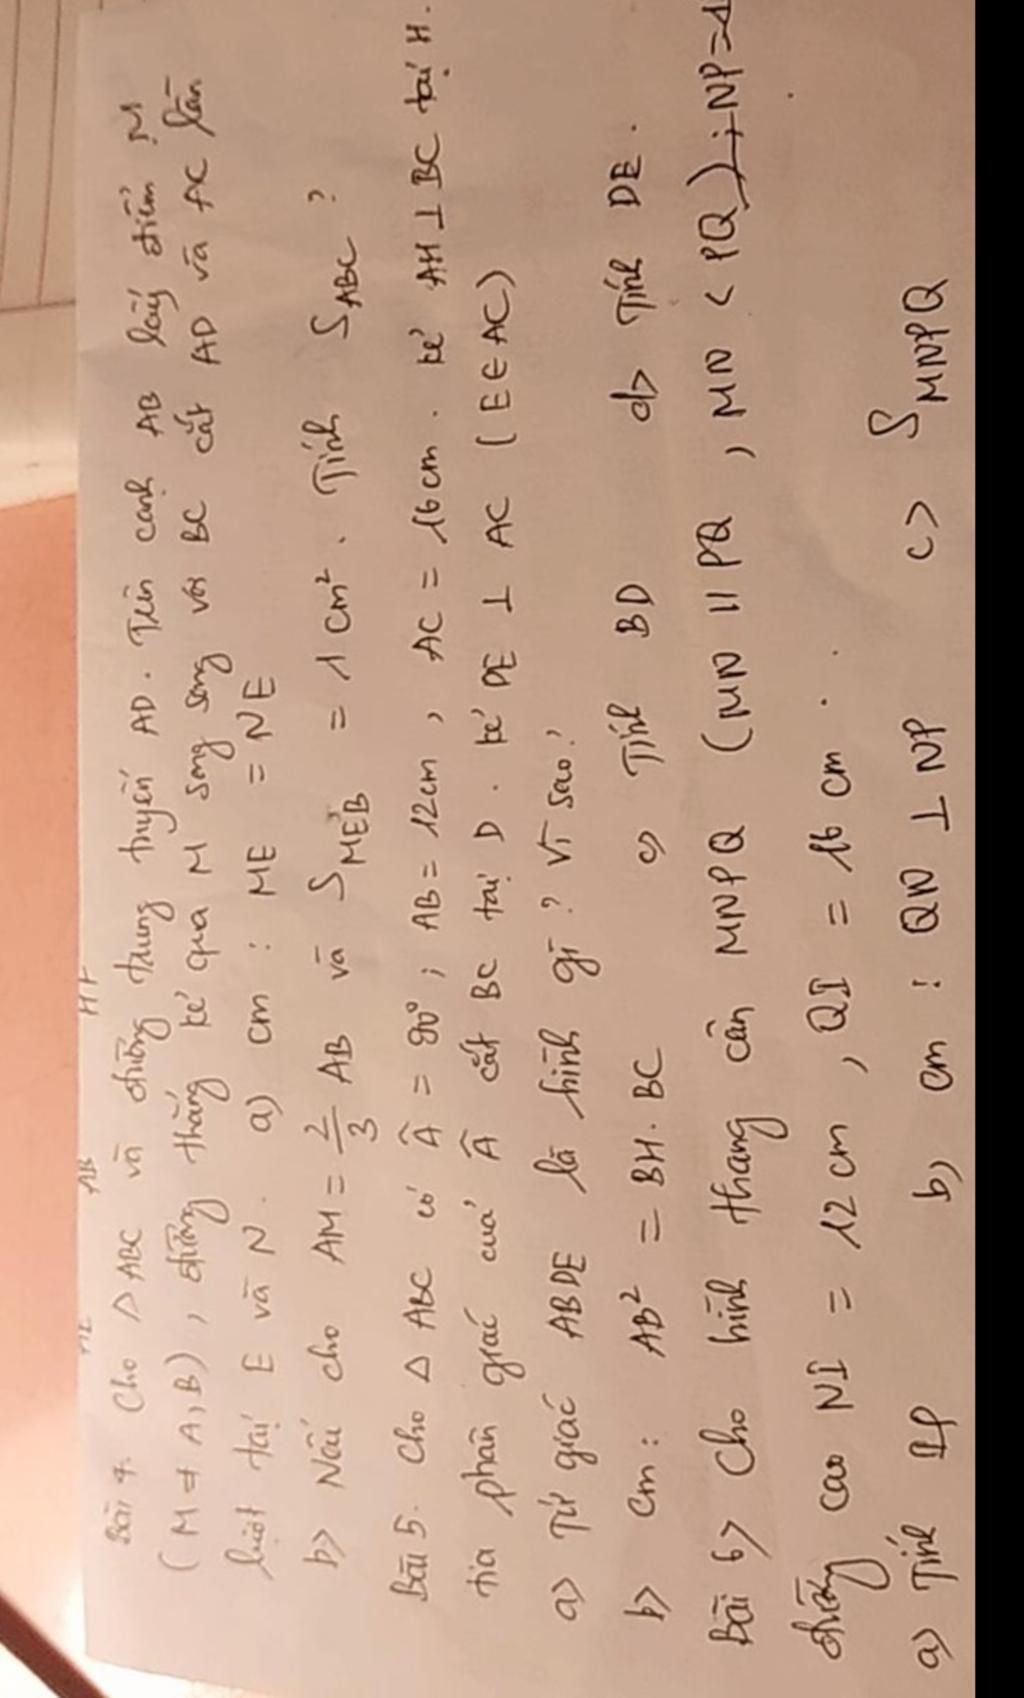 AE AB HF
Bài 4. Cho △ ABC và đường trung tuyến AD. Trên cạnh AB lấy điểm M
(M ≠ A, B), đường thẳng kẻ qua M song song với BC cắt AD và AC lần
lượt tại E và N. a) cm : ME = NE
b> Nếu cho AM = 2/3 AB và S_MEB = 1 cm². Tính S_ABC ?
Bài 5. Cho △ ABC có Â = 90° ; AB = 12cm , AC = 16cm. kẻ AH ⊥ BC tại H.
tia phân giác của Â cắt BC tại D. kẻ DE ⊥ AC (E ∈ AC)
a> Tứ giác ABDE là hình gì ? Vì sao?
b> cm: AB² = BH. BC c) Tính BD d> Tính DE.
Bài 6> Cho hình thang cân MNPQ (MN // PQ , MN < PQ) ; NP = 1
đường cao NI = 12 cm , QI = 16 cm .
a) Tính IP b) cm : QN ⊥ NP c> S_MNPQ